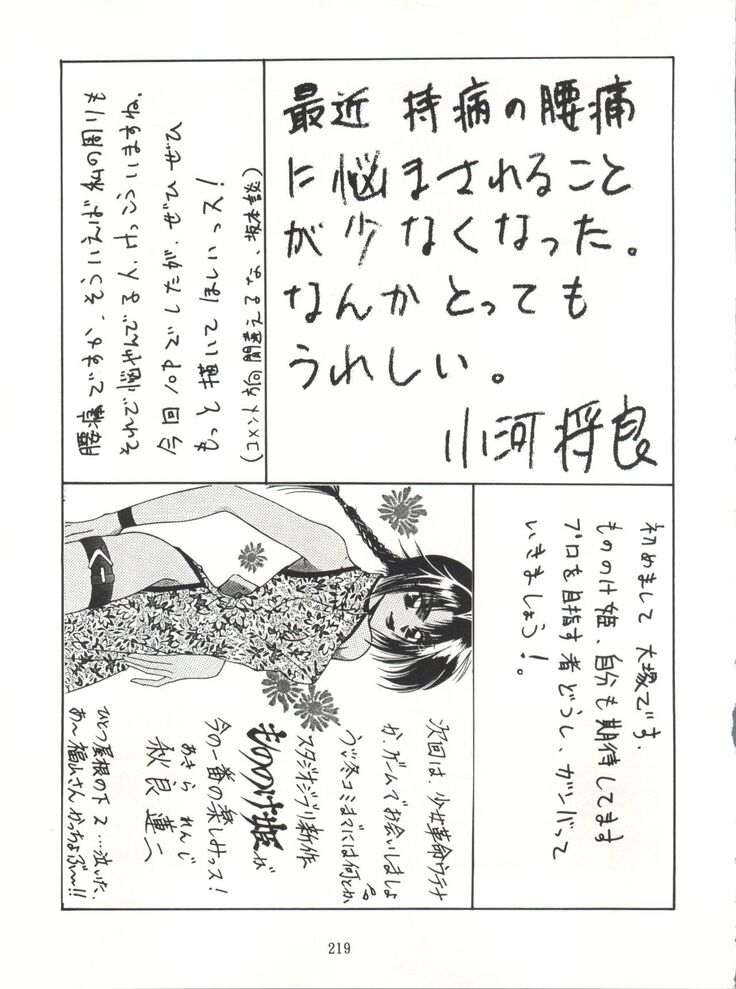 最近 持病の腰痛
に悩まされること
が少なくなった。
なんかとっても
うれしい。
小河将良
腰痛ですか、そういえば私の周りも
それで悩やんでる人、けっこういますね。
今回10Pでしたが、ぜひぜひ
もっと描いてほしいっス！
(コメント方向間違えるな、坂本談)
初めまして 大塚です。
もののけ姫、自分も期待してます
プロを目指す者どうし、ガンバって
いきましょう！。
次回は、少女革命ウテナ
か、ゲームでお会いしましょ
うッ冬コミまでには何とか
スタジオジブリ新作
もののけ姫が
今の一番の楽しみっス！
あきら れんじ
秋良 蓮二
ひとつ屋根の下2…泣いた。
あ～福山さんかっちょぶ～!!
219